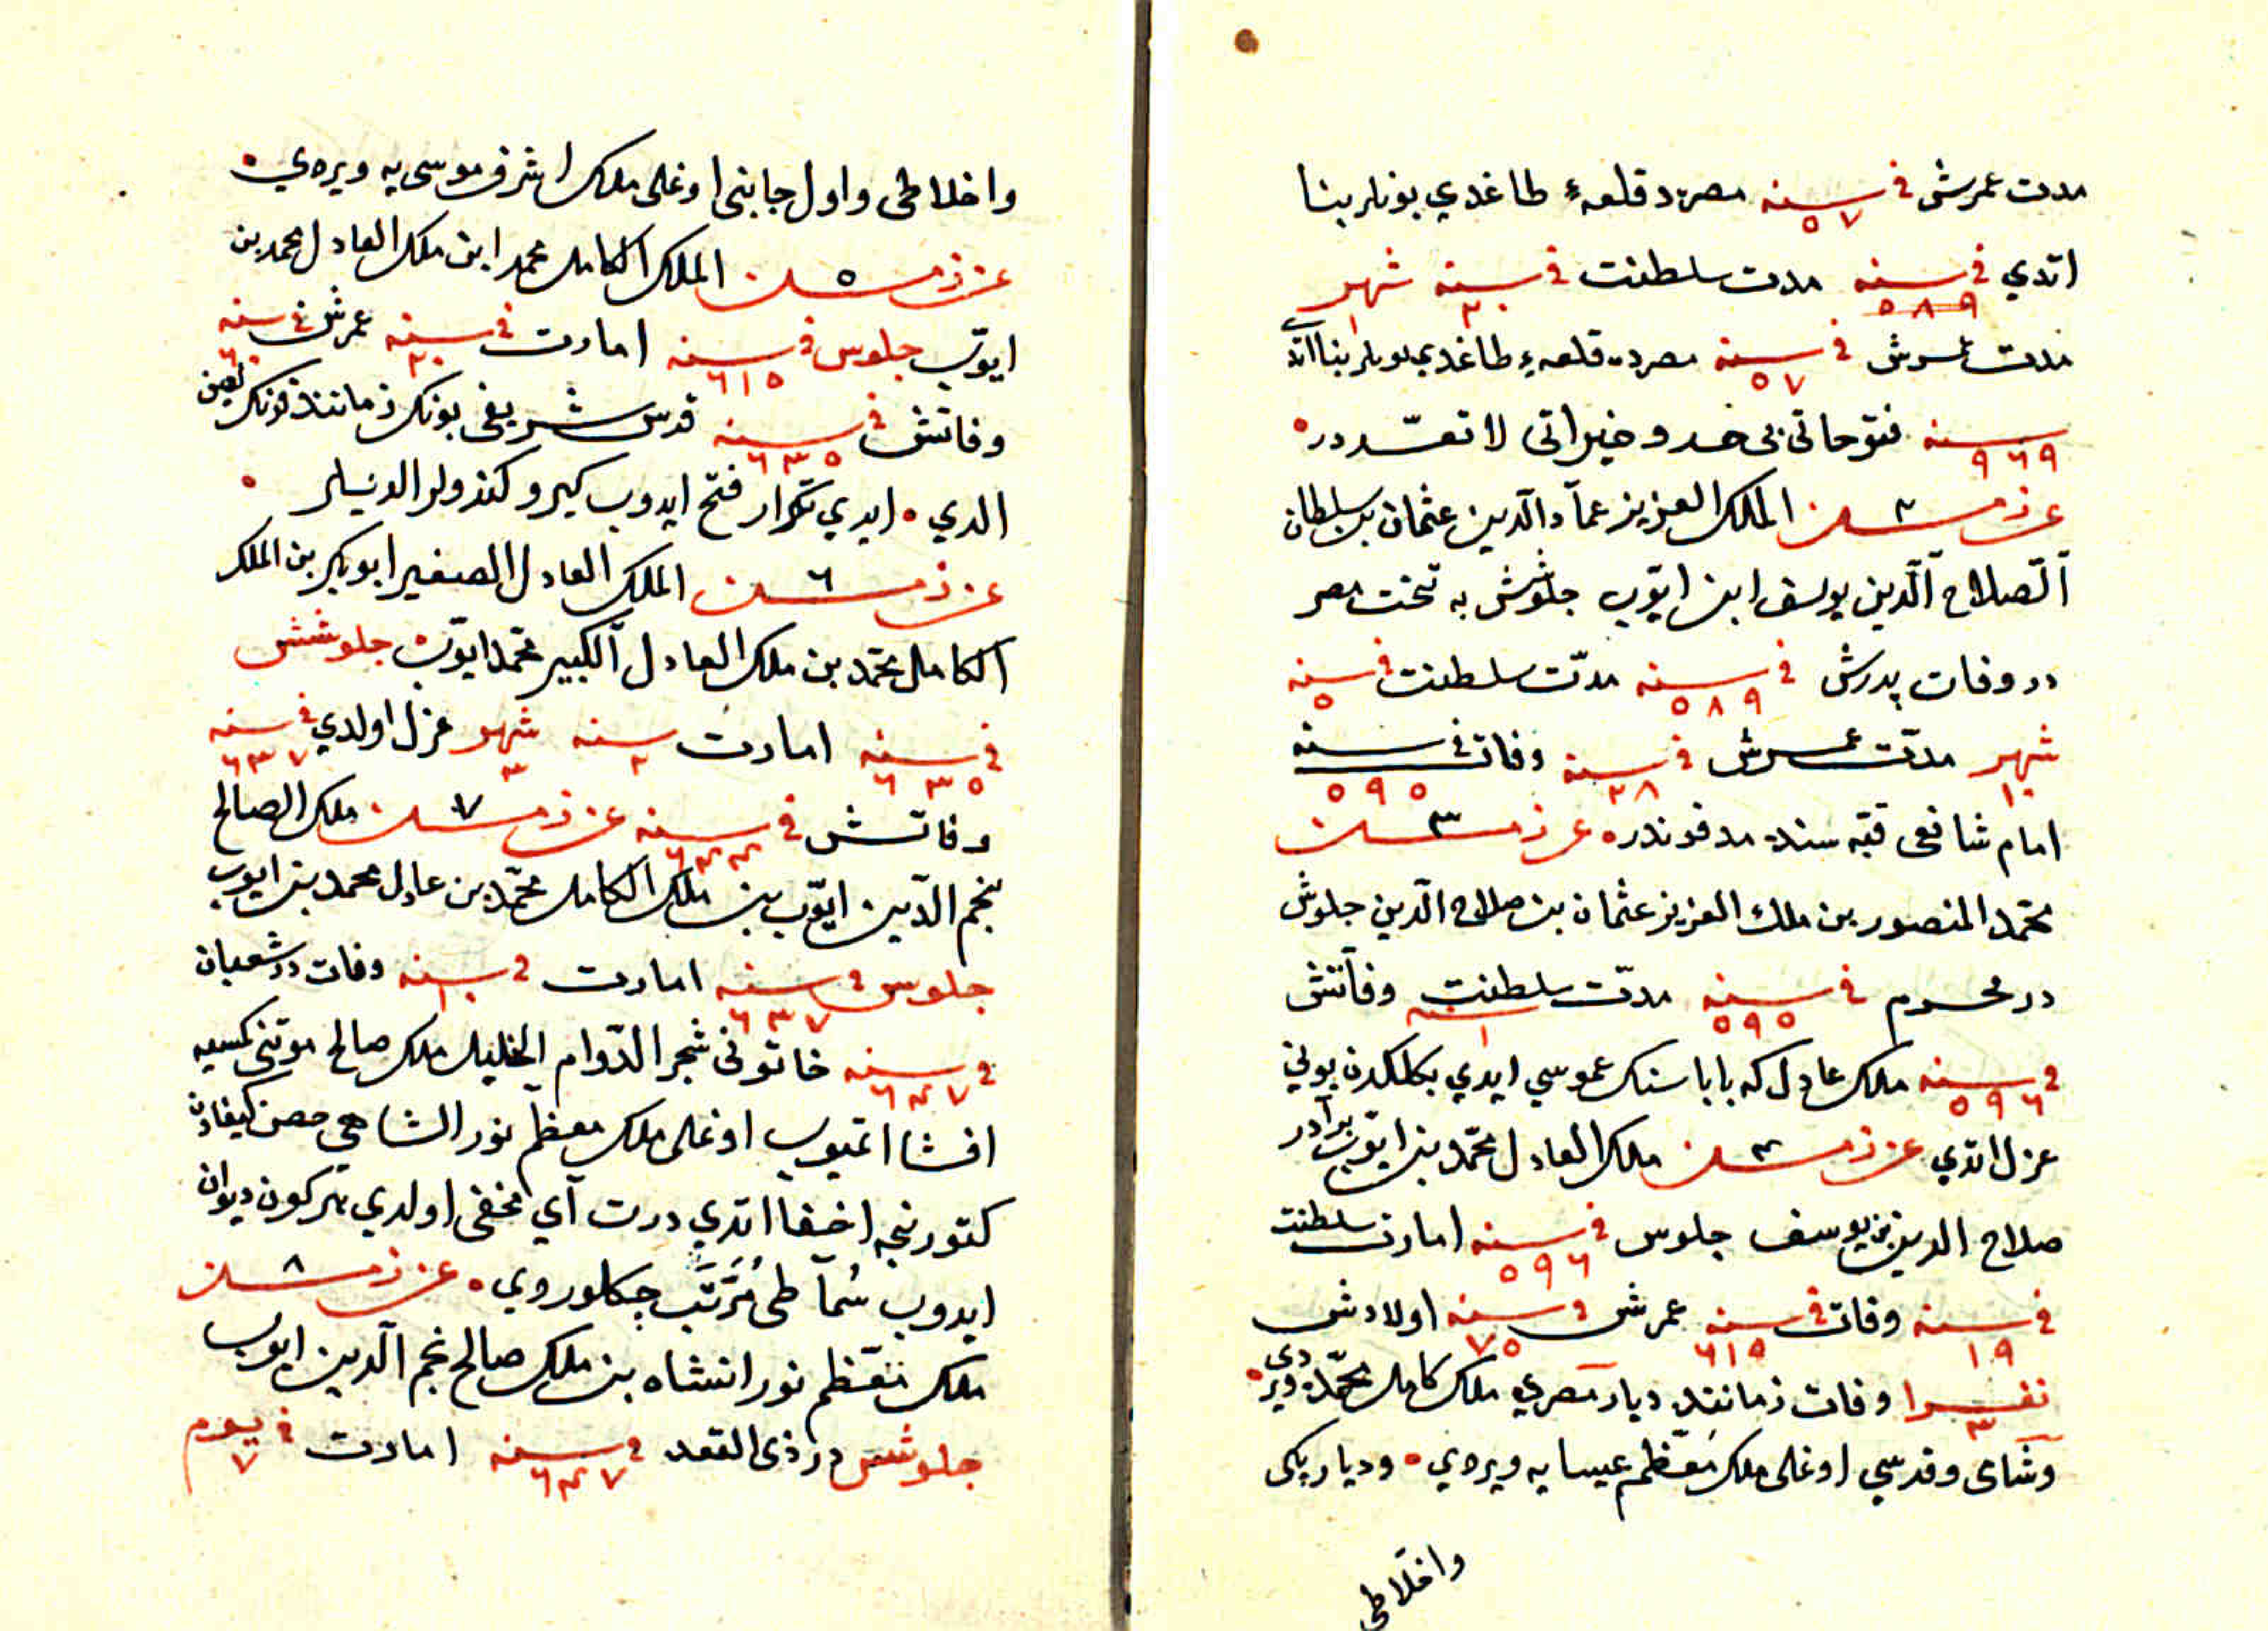 مدت عمرش في سنه ٥٧ مصرده قلعهء طاغدي بونلر بنا
اتدي في سنه ٥٨٩ مدت سلطنت في سنه ٢٠ شهر ١
مدت عمرش في سنه ٥٧ مصرده قلعهء طاغدي بونلر بنا اتدي
سنه ٩٦٩ فتوحاتى بى حد و خيراتى لا تعدّ در
عزيز مسلمان ٢ الملك العزيز عماد الدين عثمان بن سلطان
الصلاح الدين يوسف ابن ايوب جلوسش به تخت مصر
در وفات پدرش في سنه ٥٨٩ مدّت سلطنت في سنه ٥
شهر ١٠ مدّت عمرش في سنه ٢٨ وفات في سنه ٥٩٥
امام شافعى قبه سنده مدفوندره ٣
محمد المنصور بن ملك العزيز عثمان بن صلاح الدين جلوسش
در محرم في سنه ٥٩٥ مدّت سلطنت سنه ١ وفاتش
في سنه ٥٩٦ ملك عادل كه باباسنك عموسي ايدي بكلكدن بوني
عزل اتدي ٤ ملك العادل محمد بن ايوب برادر
صلاح الدين بن يوسف جلوس في سنه ٥٩٦ امارت سلطنت
في سنه ١٩ وفات في سنه ٦١٥ عمرش في سنه ٧٥ اولادش
نفرا ٣ وفات زماننده ديار مصري ملك كامل محمده ويردى
وشامى وقدسي اوغلى ملك معظم عيسايه ويردي وديار بكى
واخلاطى
واخلاطى واول جانبى اوغلى ملك اشرف موسى يه ويردي
٥ الملك الكامل محمد ابن ملك العادل محمد بن
ايوب جلوس في سنه ٦١٥ امارت في سنه ٢٠ عمرش في سنه ٦٠
وفاتش في سنه ٦٣٥ قدس شريفى بونك زماننده فرنك
الدي ايدي تكرار فتح ايدوب كيرو كندولر الديلر
٦ الملك العادل الصغير ابو بكر بن الملك
الكامل محمد بن ملك العادل الكبير محمد ايوب جلوسش
في سنه ٦٣٥ امارت سنه ٢ شهر ٣ عزل اولدي في سنه ٦٣٧
وفاتش في سنه ٦٤٤ ٧ ملك الصالح
نجم الدين ايوب بن ملك الكامل محمد بن عادل محمد بن ايوب
جلوس في سنه ٦٣٧ امارت في سنه ١٠ وفات در شعبان
في سنه ٦٤٧ خاتونى شجر الدوام الخليل ملك صالح موتنى كمسيه
افشا اتميوب اوغلى ملك معظم نور الشاهى حصن كيفادن
كتورنجه اخفا اتدي درت آي مخفى اولدي هر كون ديوان
ايدوب سُماطى مُرَتَّب چكلوروي ٨
ملك معظم نورانشاه بن ملك صالح نجم الدين ايوب
جلوسش در ذى القعده في سنه ٦٤٧ امارت في يوم ٧